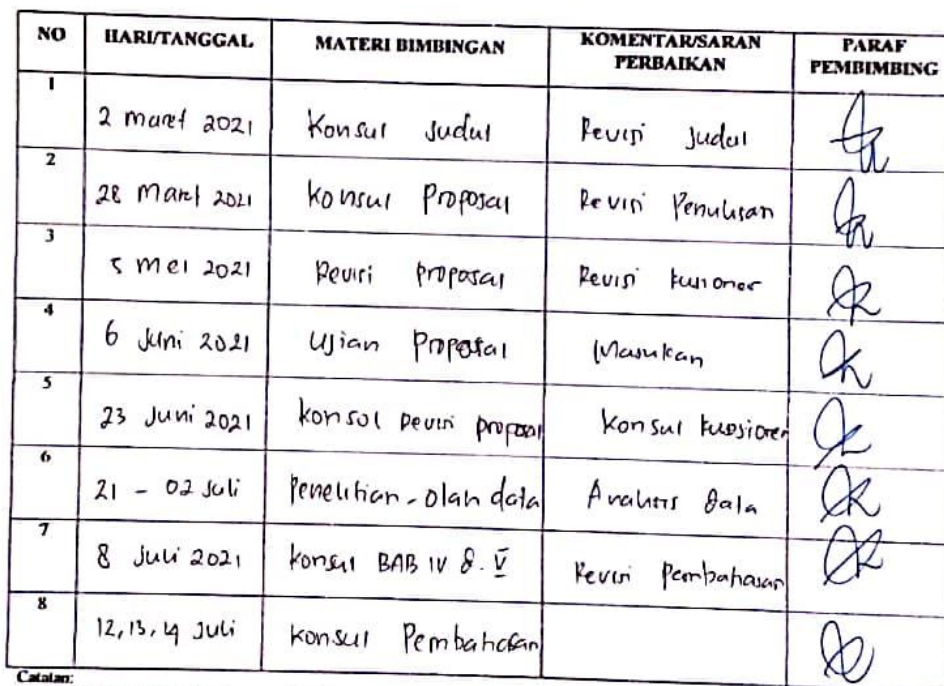 NO HARI/TANGGAL MATERI BIMBINGAN KOMENTAR/SARAN PERBAIKAN PARAF PEMBIMBING
1 2 maret 2021 Konsul Judul Revisi Judul
2 28 Maret 2021 Konsul Proposal Revisi Penulisan
3 5 Mei 2021 Revisi Proposal Revisi kusioner
4 6 Juni 2021 Ujian Proposal Masukan
5 23 Juni 2021 konsul Revisi proposal Konsul kuesioner
6 21 - 02 Juli Penelitian - olah data Analisis data
7 8 Juli 2021 konsul BAB IV & V Revisi Pembahasan
8 12, 13, 14 Juli Konsul Pembahasan
Catatan: